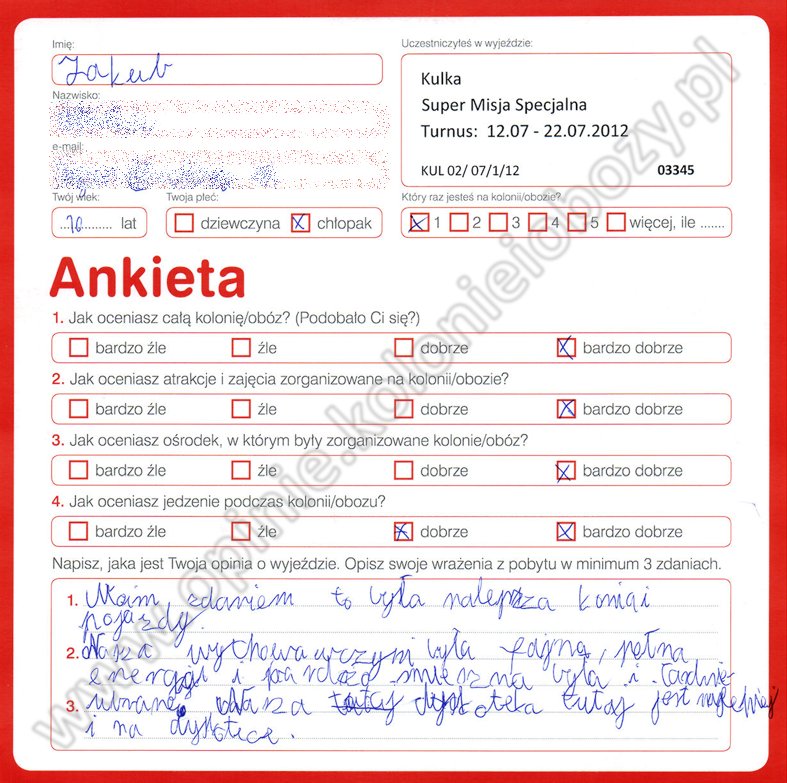 Imię:
Jakub
Uczestniczyłeś w wyjeździe:
Kulka
Super Misja Specjalna
Turnus: 12.07 - 22.07.2012
KUL 02/ 07/1/12 03345
Nazwisko:
e-mail:
Twój wiek:
lat
Twoja płeć:
dziewczyna x chłopak
Który raz jesteś na kolonii/obozie?
x 1 2 3 4 5 więcej, ile .......
Ankieta
1. Jak oceniasz całą kolonię/obóz? (Podobało Ci się?)
bardzo źle źle dobrze x bardzo dobrze
2. Jak oceniasz atrakcje i zajęcia zorganizowane na kolonii/obozie?
bardzo źle źle dobrze x bardzo dobrze
3. Jak oceniasz ośrodek, w którym były zorganizowane kolonie/obóz?
bardzo źle źle dobrze x bardzo dobrze
4. Jak oceniasz jedzenie podczas kolonii/obozu?
bardzo źle źle x dobrze x bardzo dobrze
Napisz, jaka jest Twoja opinia o wyjeździe. Opisz swoje wrażenia z pobytu w minimum 3 zdaniach.
1. Moim zdaniem to była
pojazdy.
2. Nasza była fagna, pełna
i śmieszna była i ładnie
3. Nasza dyskoteka tutaj jest
i na dyskotece.
www.opinie.kolonieiobozy.pl